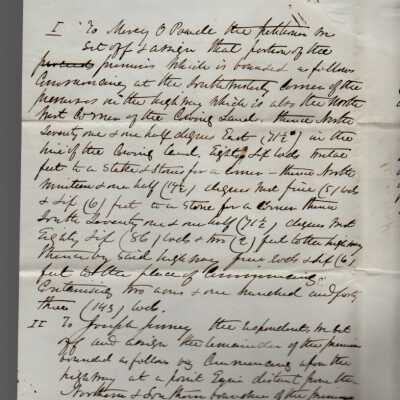 I To Mercy O Powell the petitioner we
set off & assign that portion of the
premises which is bounded as follows
Commencing at the Southwesterly corner of the
premises in the highway which is also the North
West Corner of the Land. thence North
Seventy one & one half degrees East (71½°) in the
line of the Land, Eighty Six rods
feet to a Stake & Stones for a corner - thence North
& one half degrees West five (5) rods
& six (6) feet to a Stone for a corner thence
South Seventy one & one half (71½) degrees West
Eighty Six (86) rods & two (2) feet to the highway
thence by said highway five rods & six (6)
feet to the place of Commencing.
Containing two acres & one hundred and forty
three (143) rods.
II To Joseph the respondents we set
off and assign the remainder of the premises
bounded as follows viz Commencing upon the
highway at a point Equi distant from the
Northern & Southern boundaries of the premises